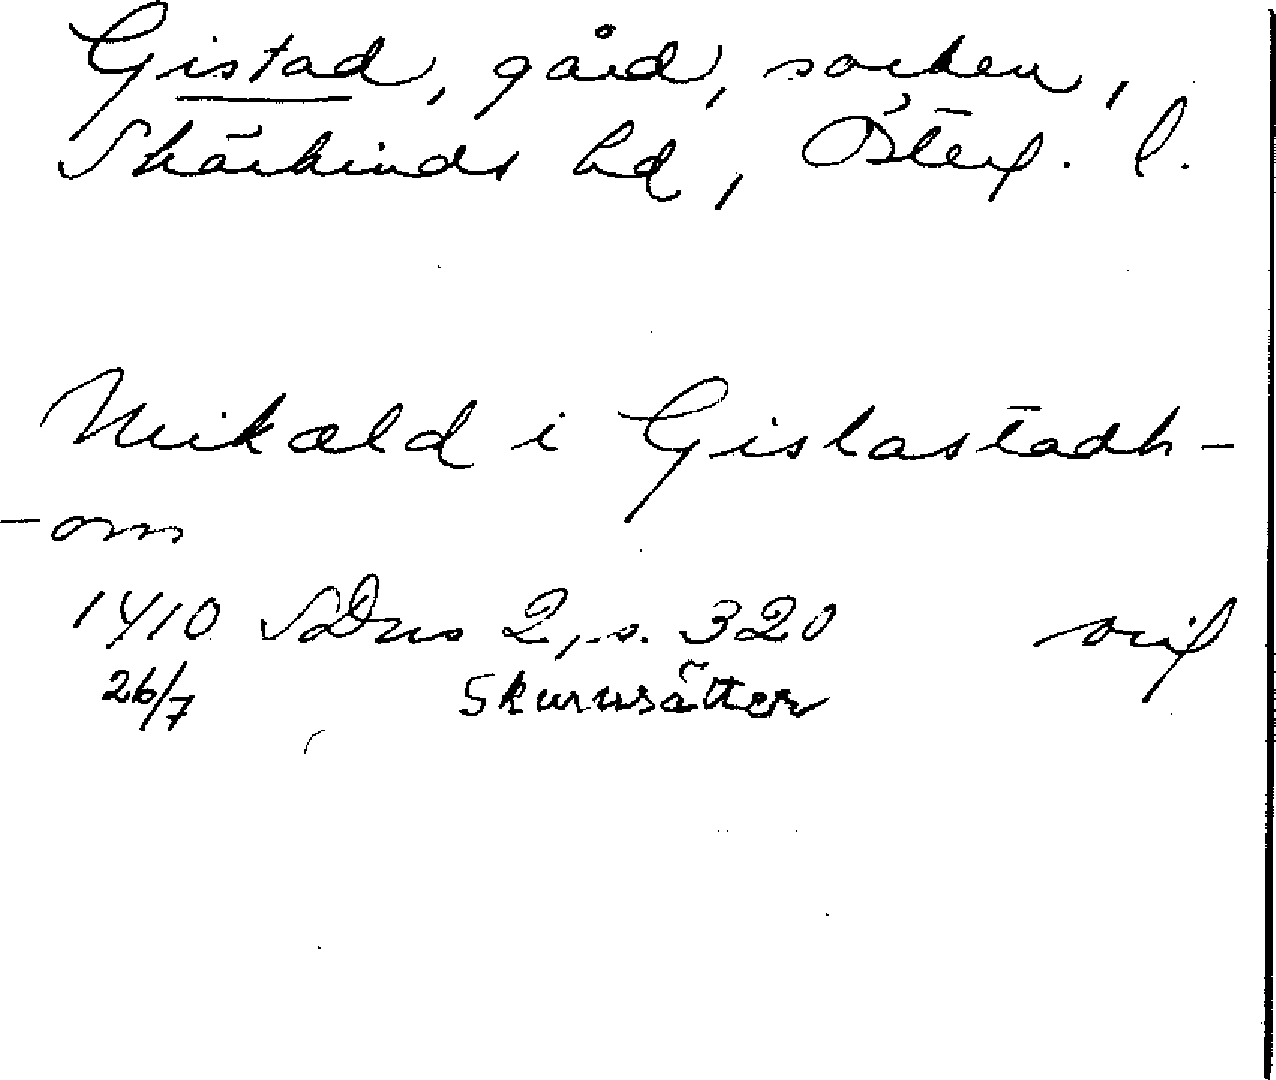 Gistad, gård, socken,
Skärkinds hd, Österg. l.
Mikæld i Gislastadh-
-om
1410 SDns 2, s. 320 orig
26/7 Skurusätter